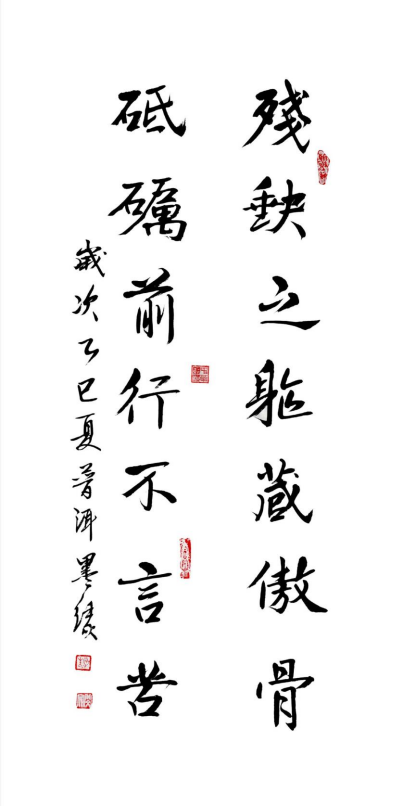 殘缺之軀藏傲骨
砥礪前行不言苦
歲次乙巳夏普洱墨績